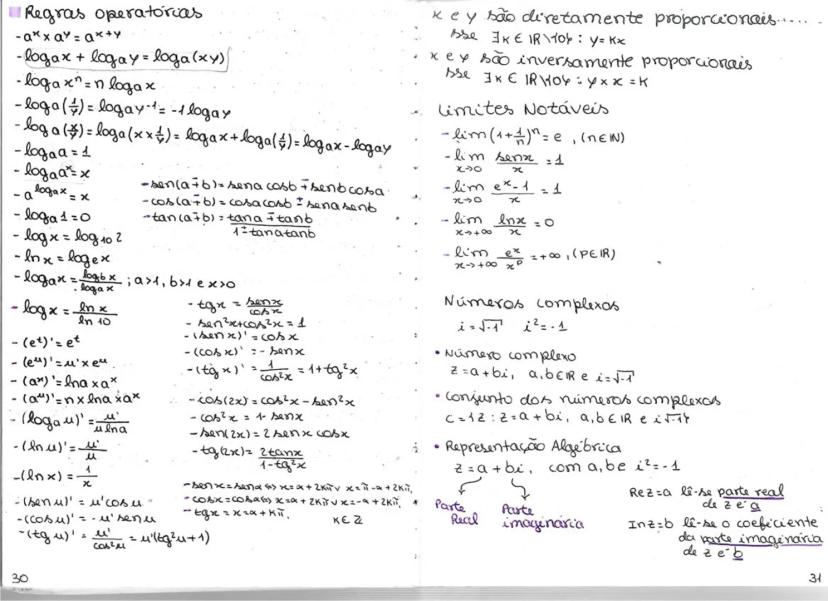 Regras operatórias
- aˣ × aʸ = aˣ⁺ʸ
- logₐx + logₐy = logₐ(xy)
- logₐxⁿ = n logₐx
- logₐ(1/y) = logₐy⁻¹ = -1 logₐy
- logₐ(x/y) = logₐ(x × 1/y) = logₐx + logₐ(1/y) = logₐx - logₐy
- logₐa = 1
- logₐaˣ = x
- a^(logₐx) = x
- logₐ1 = 0
- log x = log₁₀ 2
- ln x = logₑx
- sen(a∓b) = sena cosb ∓ senb cosa
- cos(a∓b) = cosa cosb ± sena senb
- tan(a∓b) = (tana ∓ tanb)/(1±tana tanb)
- logₐx = log_b x/logₐx ; a>1, b>1 e x>0
- log x = ln x/ln 10
- (eᵗ)' = eᵗ
- (eᵘ)' = u' × eᵘ
- (aˣ)' = ln a × aˣ
- (aᵘ)' = n × ln a × aˣ
- (logₐu)' = u'/(u ln a)
- (ln u)' = u'/u
- (ln x) = 1/x
- (sen u)' = u' cos u
- (cos u)' = - u' sen u
- (tg u)' = u'/cos²u = u'(tg²u + 1)
- tg x = senx/cosx
- sen²x + cos²x = 1
- (sen x)' = cos x
- (cos x)' = - sen x
- (tg x)' = 1/cos²x = 1 + tg²x
- cos(2x) = cos²x - sen²x
- cos²x = 1 - senx
- sen(2x) = 2 senx cosx
- tg(2x) = 2tanx/(1-tg²x)
- senx = senα ⇔ x = α + 2kπ ∨ x = π - α + 2kπ,
- cosx = cosα ⇔ x = α + 2kπ ∨ x = -α + 2kπ,
- tgx = x = α + kπ,
k ∈ ℤ
30
x e y são diretamente proporcionais.....
sse ∃k ∈ ℝ\{0} : y = kx
x e y são inversamente proporcionais
sse ∃k ∈ ℝ\{0} : y × x = k
Limites Notáveis
- lim (1 + 1/n)ⁿ = e , (n ∈ ℕ)
- lim x→0 senx/x = 1
- lim x→0 (eˣ - 1)/x = 1
- lim x→+∞ lnx/x = 0
- lim x→+∞ eˣ/xᵖ = +∞ , (P ∈ ℝ)
Números complexos
i = √-1   i² = -1
• Número complexo
z = a + bi, a, b ∈ ℝ e i = √-1
• Conjunto dos números complexos
C = {z : z = a + bi, a, b ∈ ℝ e i √-1}
• Representação Algébrica
z = a + bi, com a, b e i² = -1
Parte Real
Parte imaginária
Re z = a lê-se parte real
de z é a
In z = b lê-se o coeficiente
da parte imaginária
de z é b
31